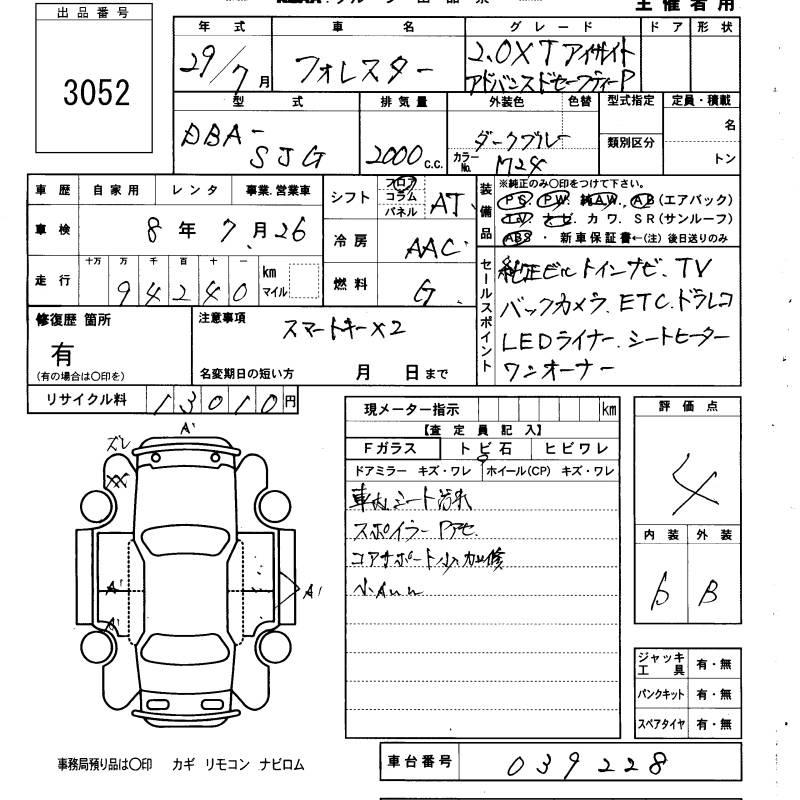 主催者用
出品番号
3052
年式 車名 グレード ドア 形状
29/7月 フォレスター 2.0XTアイサイト
アドバンスドセーフティーP
型式 排気量 外装色 色替 型式指定 定員・積載
DBA-
SJG
2000 c.c.
ダークブルー
カラーNo. M24
類別区分
名
トン
車歴 自家用 レンタ 事業.営業車
車検 8年7月26
走行 十万 万 千 百 十 一
94240 km マイル
シフト フロア コラム パネル AT
冷房 AAC
燃料 G
装備品
※純正のみ○印をつけて下さい。
PS. PW. 純AW. AB(エアバック)
TV ナビ カワ. SR(サンルーフ)
ABS ・ 新車保証書←(注) 後日送りのみ
セールスポイント
純正ビルトインナビ. TV
バックカメラ. ETC.ドラレコ
LEDライナー. シートヒーター
ワンオーナー
修復歴 箇所
有
(有の場合は○印を)
注意事項
スマートキー×2
名変期日の短い方 月 日まで
リサイクル料 13010円
現メーター指示 km
【査定員記入】
Fガラス トビ石 ヒビワレ
ドアミラー キズ・ワレ ホイール(CP) キズ・ワレ
車内シート汚れ
スポイラーPアセ
コアサポート小加修
小A
評価点
4
内装 外装
B
ズレ
A'
A'
A'
A'
ジャッキ工具 有・無
パンクキット 有・無
スペアタイヤ 有・無
事務局預り品は○印 カギ リモコン ナビロム
車台番号 039228